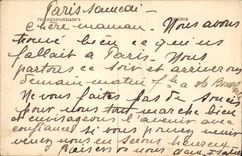 Paris samedi -
CORRESPONDANCE
Chère maman - Nous avons
trouvé bien ce qu'il
fallait à Paris. Nous
partons ce soir et arriverons
demain matin à
Ne vous faites pas de souci
pour nous tout marche bien
et envisageons l'avenir avec
confiance. Si vous pouvez venir
venez nous en serons heureux
Baisers de nous deux